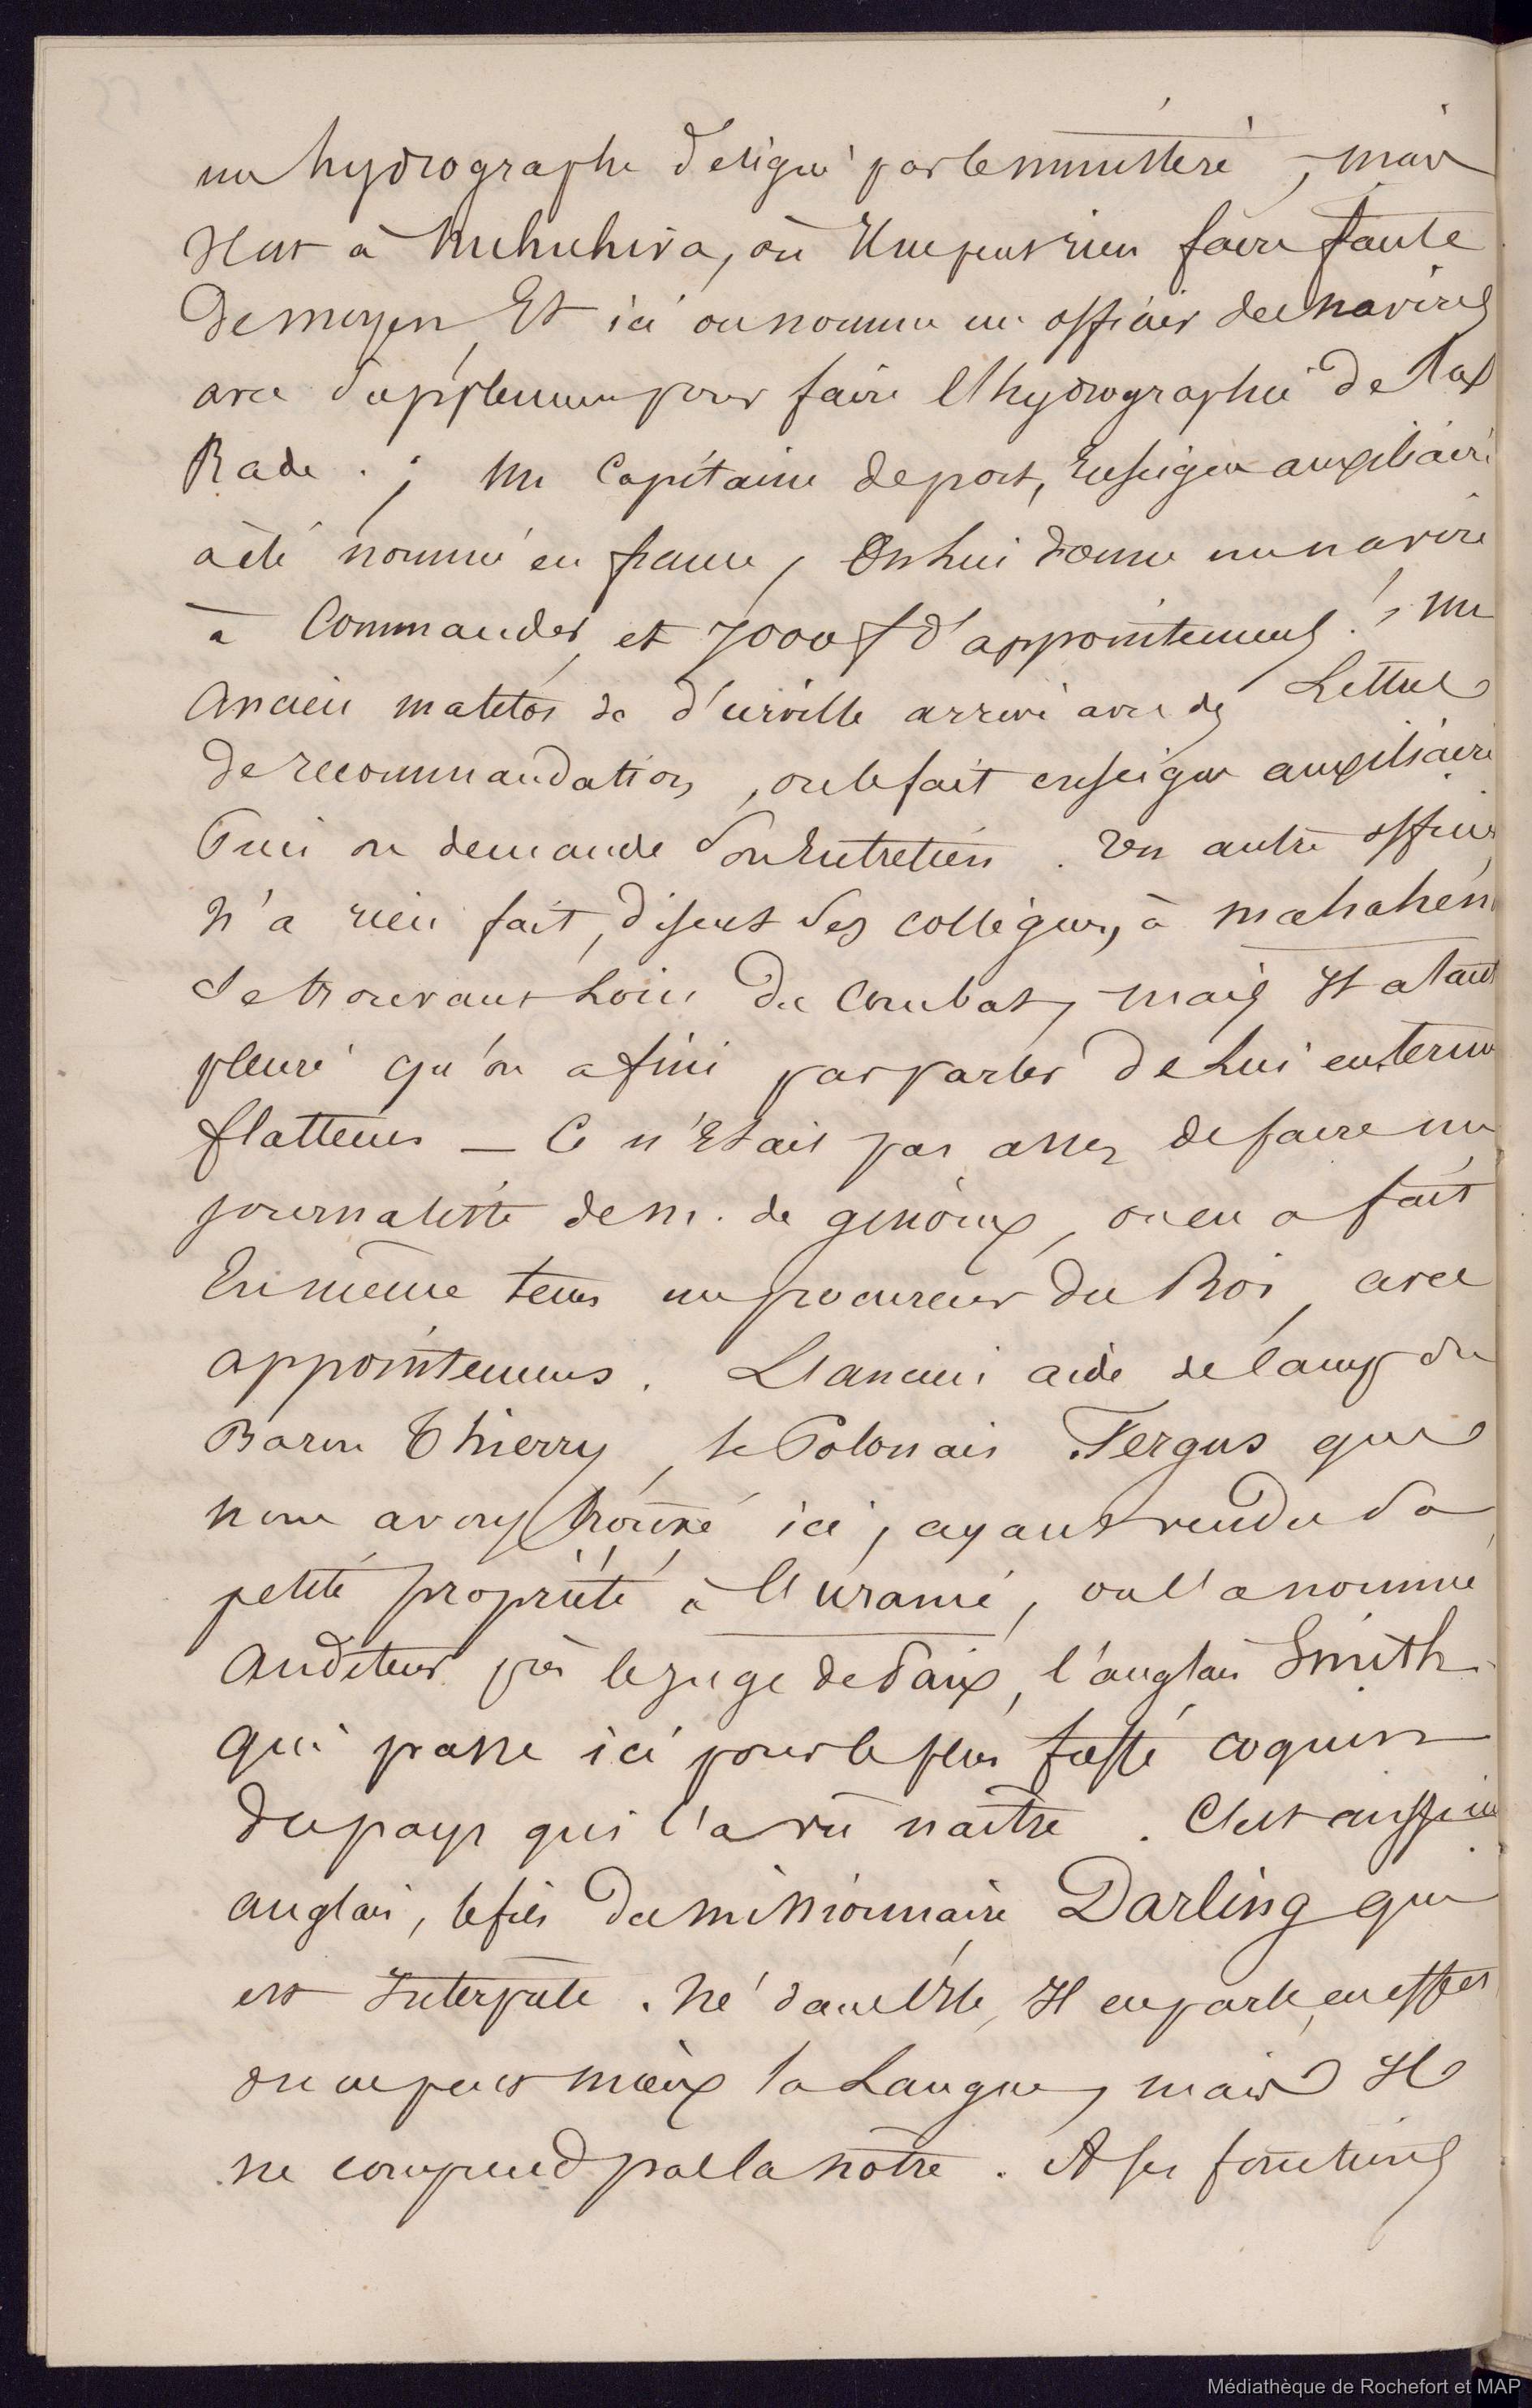 un hydrographe designé par le ministère, mais
Il est à Nuhuhiva, où Il ne peut rien faire faute
De moyen, Et ici on nomme un officier des navires
avec supplement pour faire l'hydrographie de la
Rade . ; un Capitaine de port, Enseigne auxiliaire
a été nommé en france, On lui donne un navire
à Commander, et 7000 f d'appointemens !, un
ancien matelot de d'urville arrive avec des Lettres
de recommandation, on le fait enseigne auxiliaire
Puis on demande son Entretien . Un autre officier
N'a rien fait, disent ses collègues, à mahahena
se trouvant Loin du Combat, mais Il a tant
pleuré qu'on a fini par parler de Lui en terme
flatteurs — Ce n'Etait pas assez de faire un
journaliste de m. de ginoux, on en a fait
En même tems un procureur du Roi, avec
appointemens . L'ancien aide de camp du
Baron Thierry, le Polonais Fergus que
nous avons trouvé ici, ayant vendu sa
petite propriété à l'uranie, on l'a nommé
auditeur près le juge de Paix, l'anglais Smith
qui passe ici pour le plus fieffé coquin
du pays qui l'a vu naitre . C'est aussi un
anglais, le fils du missionnaire Darling qui
est Interprete . Né dans l'Ile, Il en parle, en effet
on ne peut mieux la Langue, mais Il
ne comprend pas la nôtre . A ses fonctions
Médiathèque de Rochefort et MAP